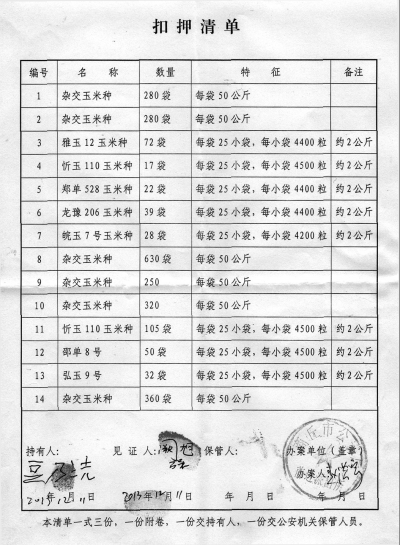 扣押清单
编号 名称 数量 特征 备注
1 杂交玉米种 280袋 每袋50公斤
2 杂交玉米种 280袋 每袋50公斤
3 雅玉12玉米种 72袋 每袋25小袋，每小袋4400粒 约2公斤
4 忻玉110玉米种 17袋 每袋25小袋，每小袋4500粒 约2公斤
5 郑单528玉米种 22袋 每袋25小袋，每小袋4400粒 约2公斤
6 龙豫206玉米种 39袋 每袋25小袋，每小袋4400粒 约2公斤
7 皖玉7号玉米种 28袋 每袋25小袋，每小袋4200粒 约2公斤
8 杂交玉米种 630袋 每袋50公斤
9 杂交玉米种 250 每袋50公斤
10 杂交玉米种 320 每袋50公斤
11 忻玉110玉米种 105袋 每袋25小袋，每小袋4500粒 约2公斤
12 邵单8号 50袋 每袋25小袋，每小袋4500粒 约2公斤
13 弘玉9号 32袋 每袋25小袋，每小袋4500粒 约2公斤
14 杂交玉米种 360袋 每袋50公斤
持有人： 见证人： 保管人： 办案单位（盖章）
办案人：
2013年12月11日 2013年12月11日 年月日 年月日
本清单一式三份，一份附卷，一份交持有人，一份交公安机关保管人员。